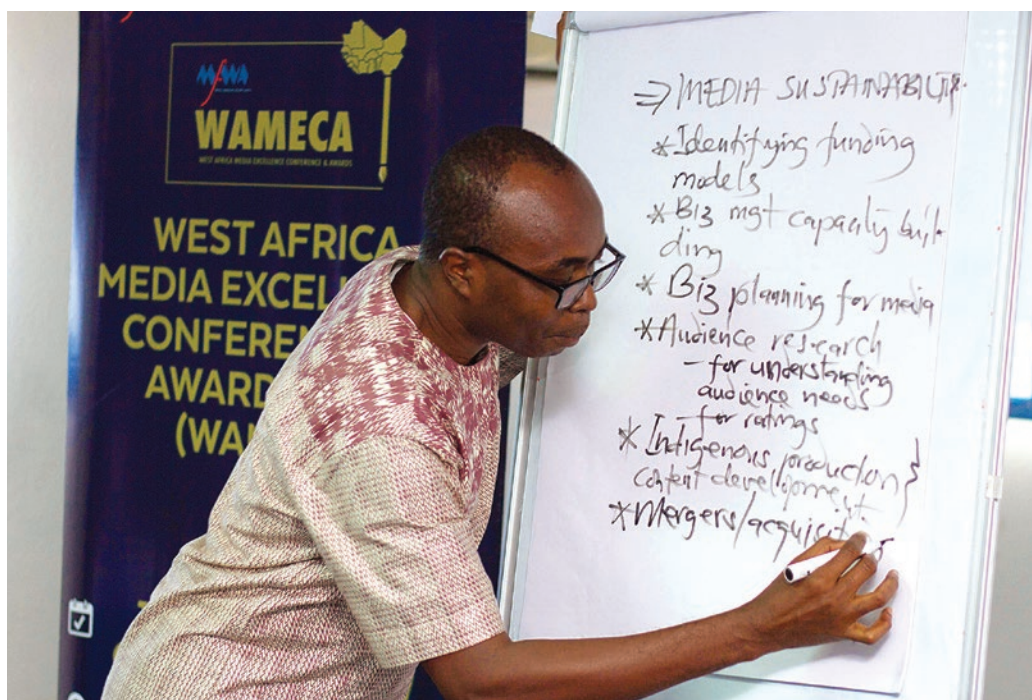 MFWA
WAMECA
WEST AFRICA MEDIA EXCELLENCE CONFERENCE & AWARDS
WEST AFRICA
MEDIA EXCEL
CONFERE
AWARD
(WA
⇒ MEDIA SUSTAINABILITY.
* Identifying funding
models
* Biz mgt capacity buil-
ding
* Biz planning for media
* Audience research
- for understanding
audience needs
- for ratings
* Indigenous production }
content development
* Mergers/acquisitions